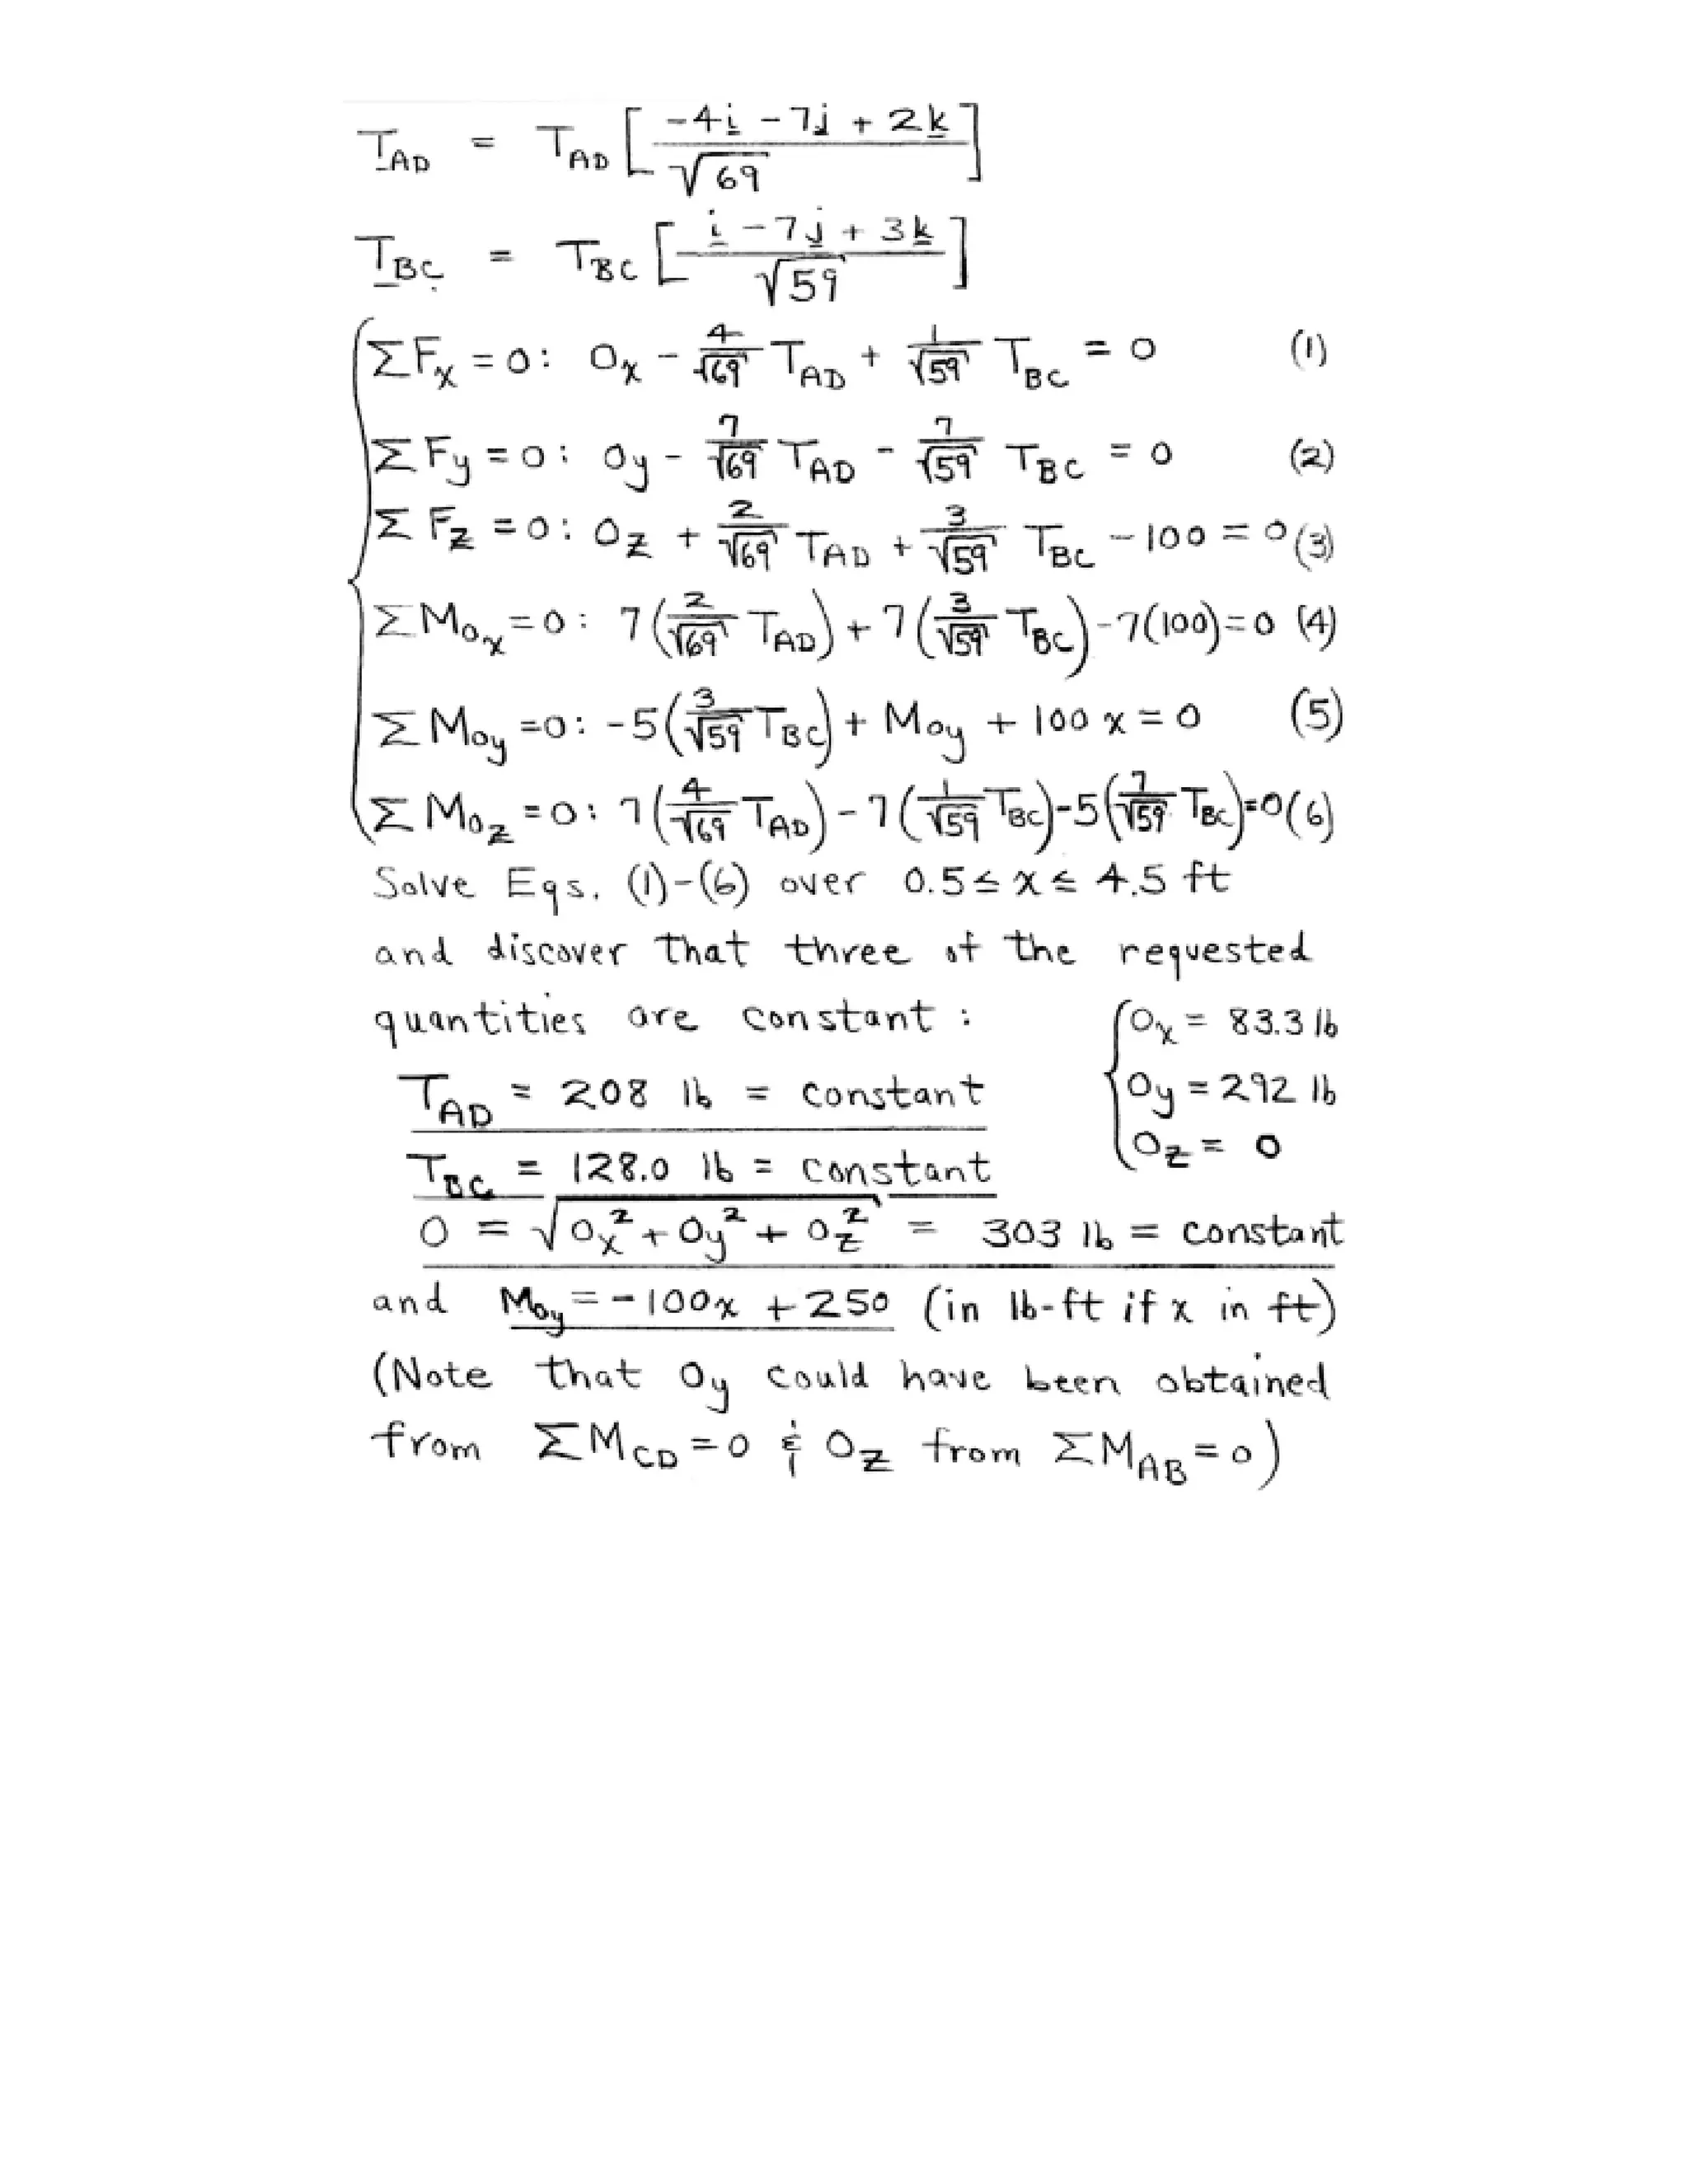 T_AD = T_AD [ (-4i - 7j + 2k) / √69 ]
T_BC = T_BC [ (i - 7j + 3k) / √59 ]
ΣFx = 0: Ox - 4/√69 T_AD + 1/√59 T_BC = 0 (1)
ΣFy = 0: Oy - 7/√69 T_AD - 7/√59 T_BC = 0 (2)
ΣFz = 0: Oz + 2/√69 T_AD + 3/√59 T_BC - 100 = 0 (3)
ΣM_Ox = 0: 7(2/√69 T_AD) + 7(3/√59 T_BC) - 7(100) = 0 (4)
ΣM_Oy = 0: -5(3/√59 T_BC) + M_Oy + 100x = 0 (5)
ΣM_Oz = 0: 7(4/√69 T_AD) - 7(1/√59 T_BC) - 5(7/√59 T_BC) = 0 (6)
Solve Eqs. (1)-(6) over 0.5 ≤ x ≤ 4.5 ft
and discover that three of the requested
quantities are constant :
Ox = 83.3 lb
T_AD = 208 lb = constant
Oy = 292 lb
Oz = 0
T_BC = 128.0 lb = constant
O = √(Ox² + Oy² + Oz²) = 303 lb = constant
and M_Oy = -100x + 250 (in lb-ft if x in ft)
(Note that Oy could have been obtained
from ΣM_CD = 0 & Oz from ΣM_AB = 0)